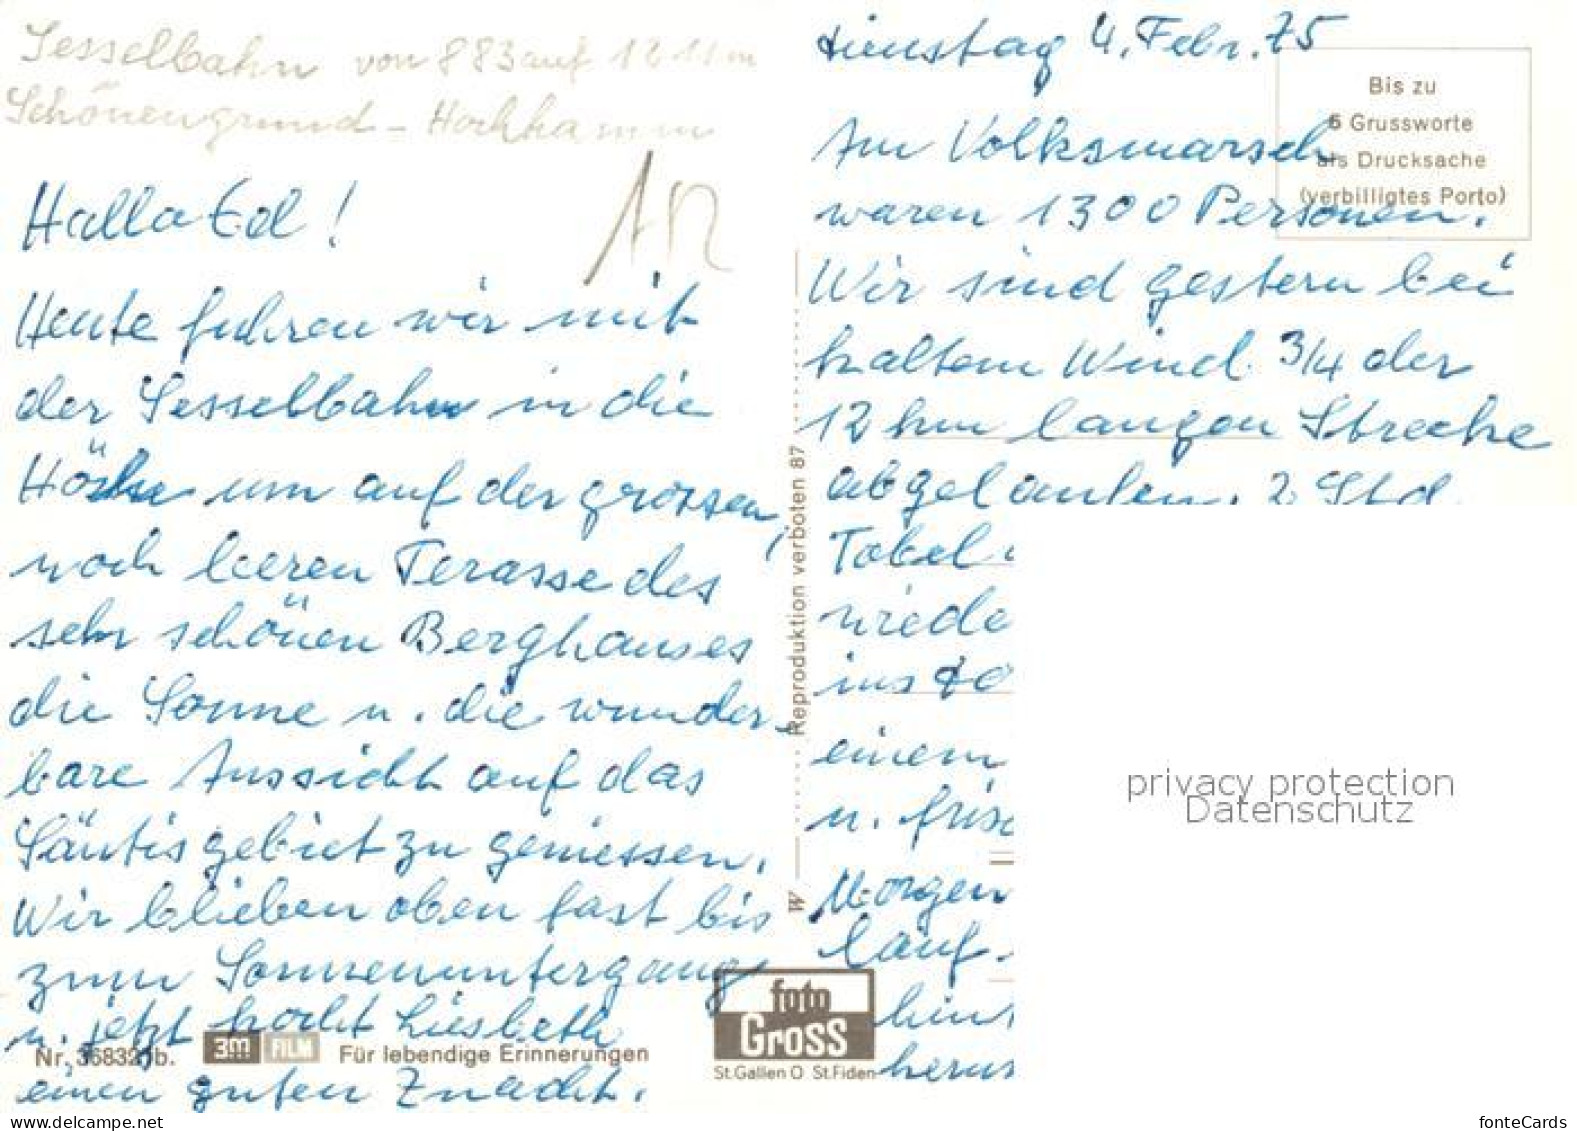 Sesselbahn von 883 auf 1211 m
Schönengrund - Hochhamm
Hallo Ed!
Heute fuhren wir mit
der Sesselbahn in die
Höhe um auf der grossen,
noch leeren Terasse des
sehr schönen Berghauses
die Sonne u. die wunder-
bare Aussicht auf das
Säntisgebiet zu geniessen.
Wir blieben oben fast bis
zum Sonnenuntergang
u. jetzt kocht Liesbeth
einen guten Znacht.
Nr. 36832 b.
3M FILM Für lebendige Erinnerungen
W Reproduktion verboten 87
foto
GROSS
St.Gallen O St.Fiden
Dienstag 4. Febr. 75
Bis zu
5 Grussworte
als Drucksache
(verbilligtes Porto)
Am Volksmarsch
waren 1300 Personen.
Wir sind gestern bei
kaltem Wind 3/4 der
12 km langen Strecke
abgelaufen. 2 Std.
Tobel
wiede
ins
einem
u. frisc
Morgen
lauf-
hin
herus
privacy protection
Datenschutz
www.ansichtskartenversand.com
fonteCards